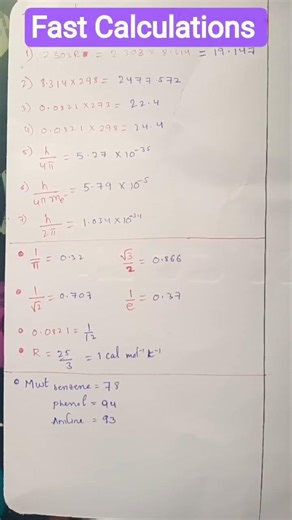 Fast Calculations
1) 2.303R = 2.303 × 8.314 = 19.147
2) 8.314 × 298 = 2477.572
3) 0.0821 × 273 = 22.4
4) 0.0821 × 298 = 24.4
5) h/4π = 5.27 × 10⁻³⁵
6) h/4πme = 5.79 × 10⁻⁵
7) h/2π = 1.034 × 10⁻³⁴
• 1/π = 0.32 √3/2 = 0.866
• 1/√2 = 0.707 1/e = 0.37
• 0.0821 = 1/12
• R = 25/3 = 1 cal mol⁻¹ k⁻¹
• Mwt benzene = 78
phenol = 94
Aniline = 93